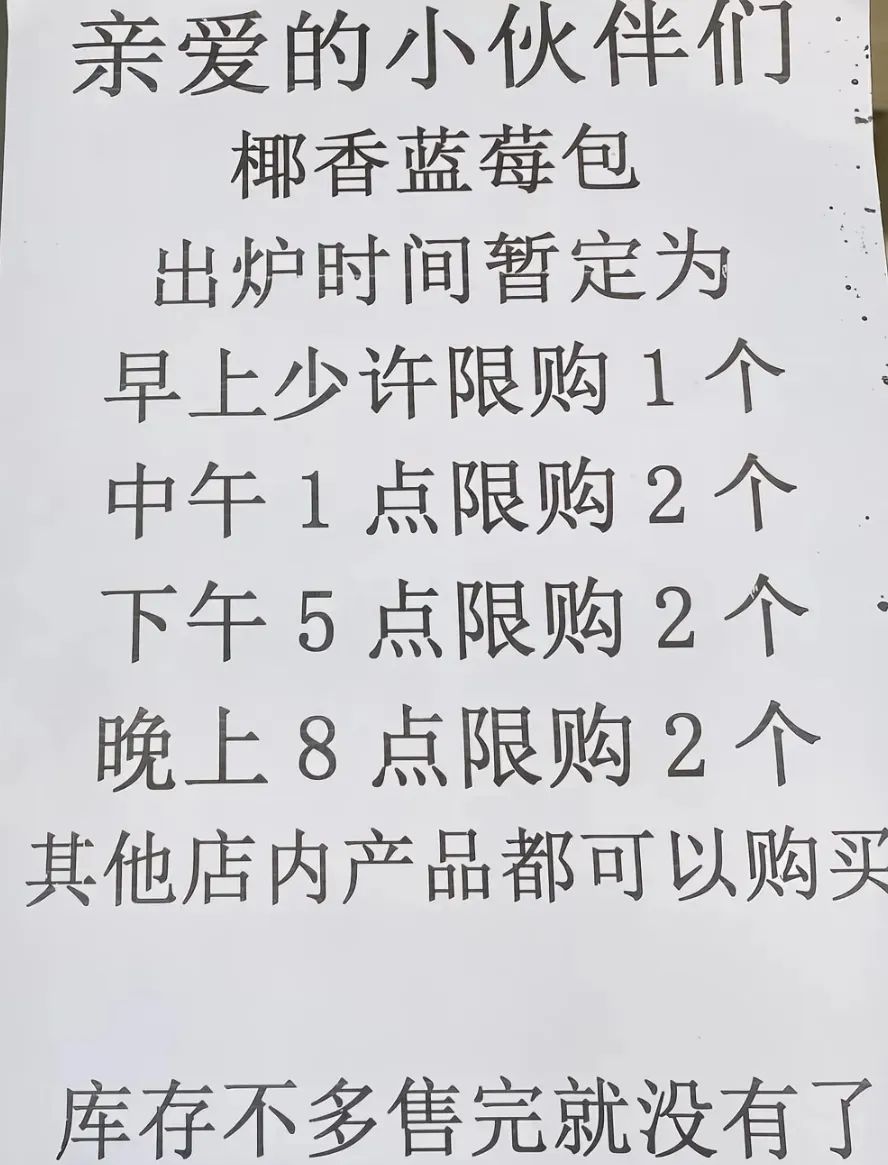 亲爱的小伙伴们
椰香蓝莓包
出炉时间暂定为
早上少许限购1个
中午1点限购2个
下午5点限购2个
晚上8点限购2个
其他店内产品都可以购买
库存不多售完就没有了